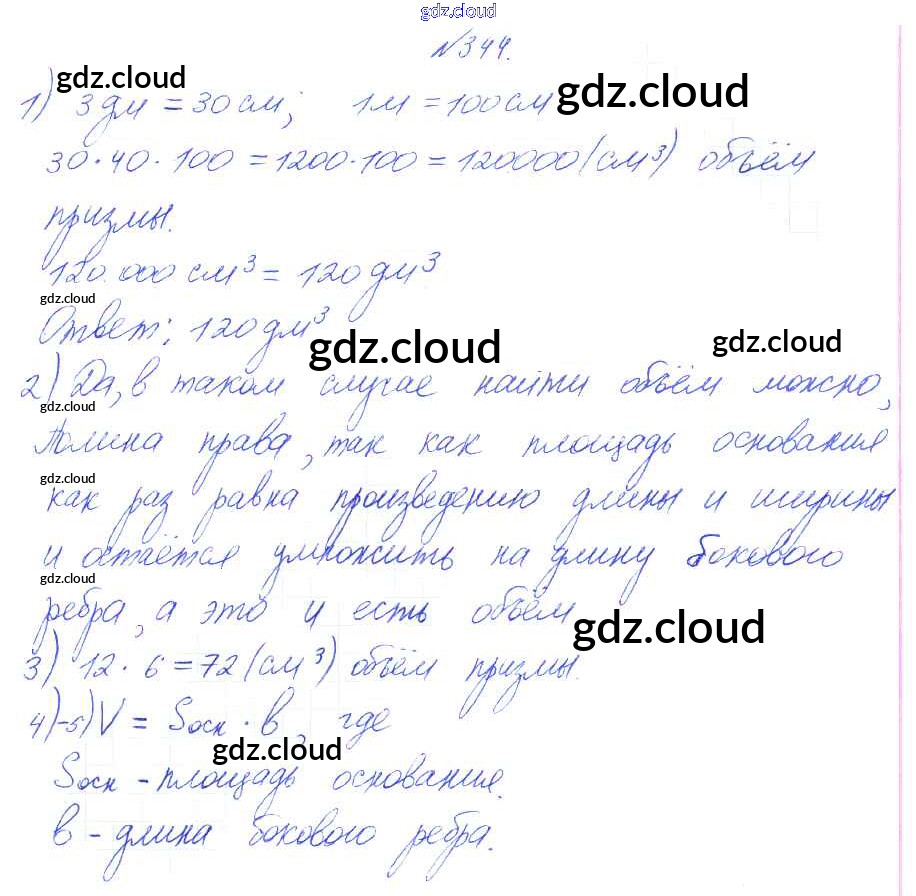 gdz.cloud
№344.
gdz.cloud
gdz.cloud
1) 3 дм = 30 см; 1м = 100 см
30 · 40 · 100 = 1200 · 100 = 120000 (см³) объём
призмы.
120.000 см³ = 120 дм³
gdz.cloud
Ответ: 120 дм³
gdz.cloud
gdz.cloud
2) Да, в таком случае найти объём можно,
gdz.cloud
Полина права, так как площадь основания
gdz.cloud
как раз равна произведению длины и ширины
и остаётся умножить на длину бокового
gdz.cloud
ребра, а это и есть объём
gdz.cloud
3) 12 · 6 = 72 (см³) объём призмы.
4)-5) V = Sосн · в, где
gdz.cloud
Sосн - площадь основания.
в - длина бокового ребра.